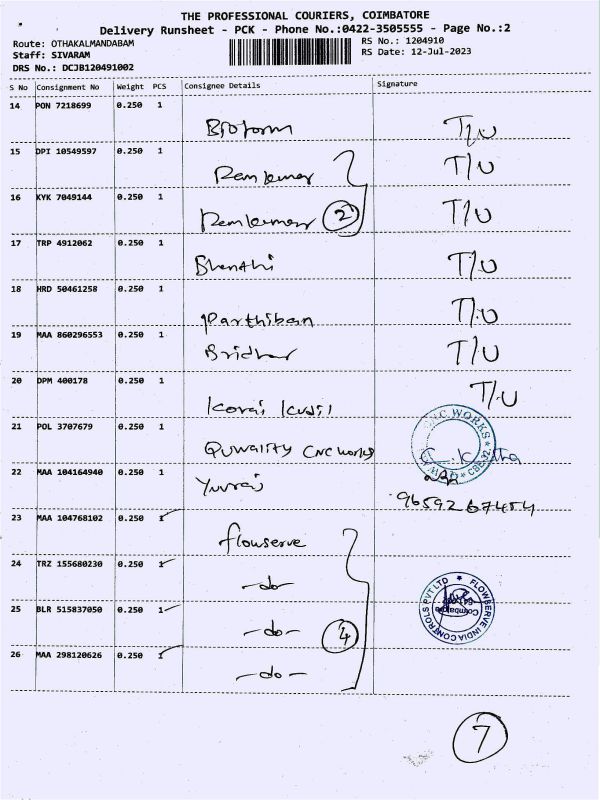 THE PROFESSIONAL COURIERS, COIMBATORE
Delivery Runsheet - PCK - Phone No.:0422-3505555 - Page No.:2
Route: OTHAKALMANDABAM
RS No.: 1204910
Staff: SIVARAM
RS Date: 12-Jul-2023
DRS No.: DCJB120491002
S No Consignment No Weight PCS Consignee Details Signature
14 PON 7218699 0.250 1
Bioform T/U
15 DPI 10549597 0.250 1
Ramkumar T/U
16 KYK 7049144 0.250 1
Ramkumar 2 T/U
17 TRP 4912062 0.250 1
Bhanthi T/U
18 HRD 50461258 0.250 1
Parthiban T/U
19 MAA 860296553 0.250 1
Sridhar T/U
20 DPM 400178 0.250 1
Kovai Kudil T/U
21 POL 3707679 0.250 1
Quwality CNC works
CNC WORKS
CBE-32
22 MAA 104164940 0.250 1
Yuvraj
23 MAA 104768102 0.250 1
flowserve
24 TRZ 155680230 0.250 1
-do-
25 BLR 515837050 0.250 1
-do- 4
FLOWSERVE INDIA CONTROLS PVT LTD
Coimbatore
26 MAA 298120626 0.250 1
-do-
7